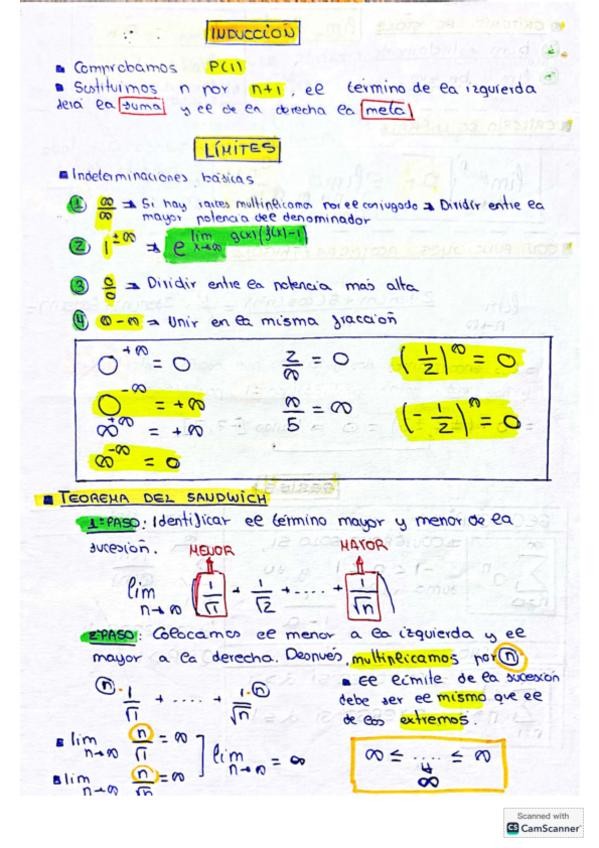 INDUCCIÓN
▪ Comprobamos P(1)
▪ Sustituimos n por n+1, el término de la izquierda
será la suma y el de la derecha la meta
LÍMITES
▪ Indeterminaciones básicas
① ∞/∞ → Si hay raíces multiplicamos por el conjugado → Dividir entre la
mayor potencia del denominador
② 1^±∞ → e^lim x→∞ g(x)(f(x)-1)
③ 0/0 → Dividir entre la potencia más alta
④ ∞-∞ → Unir en la misma fracción
0^+∞ = 0 2/∞ = 0 (1/2)^∞ = 0
0^-∞ = +∞ ∞/5 = ∞ (-1/2)^∞ = 0
∞^+∞ = +∞
∞^-∞ = 0
▪ TEOREMA DEL SANDWICH
1º PASO: Identificar el término mayor y menor de la
sucesión. MENOR MAYOR
lim n→∞ (1/√1 + 1/√2 + ..... + 1/√n)
2º PASO: Colocamos el menor a la izquierda y el
mayor a la derecha. Después, multiplicamos por n
n · 1/√1 + ..... + 1·n/√n
▪ El límite de la sucesión
debe ser el mismo que el
de los extremos.
▪ lim n→∞ n/√1 = ∞
▪ lim n→∞ n/√n = ∞
lim n→∞ = ∞
∞ ≤ ..... ≤ ∞
∞
Scanned with
CS CamScanner